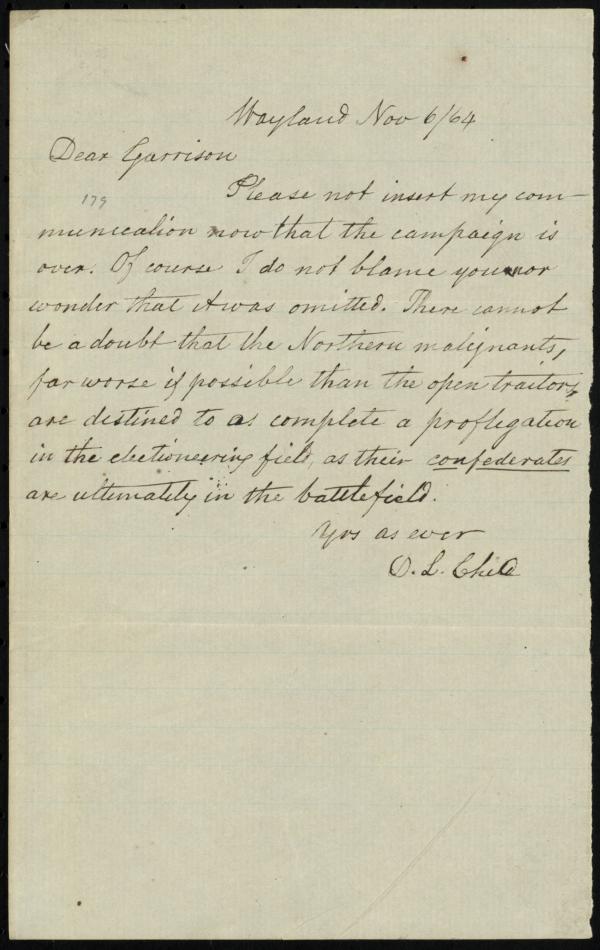 Wayland Nov 6/64
Dear Garrison
179
Please not insert my com-
munication now that the campaign is
over. Of course I do not blame you nor
wonder that it was omitted. There cannot
be a doubt that the Northern malignants,
far worse if possible than the open traitors,
are destined to as complete a proflegation
in the electioneering field, as their confederates
are ultimately in the battlefield.
Yrs as ever
D. L. Child